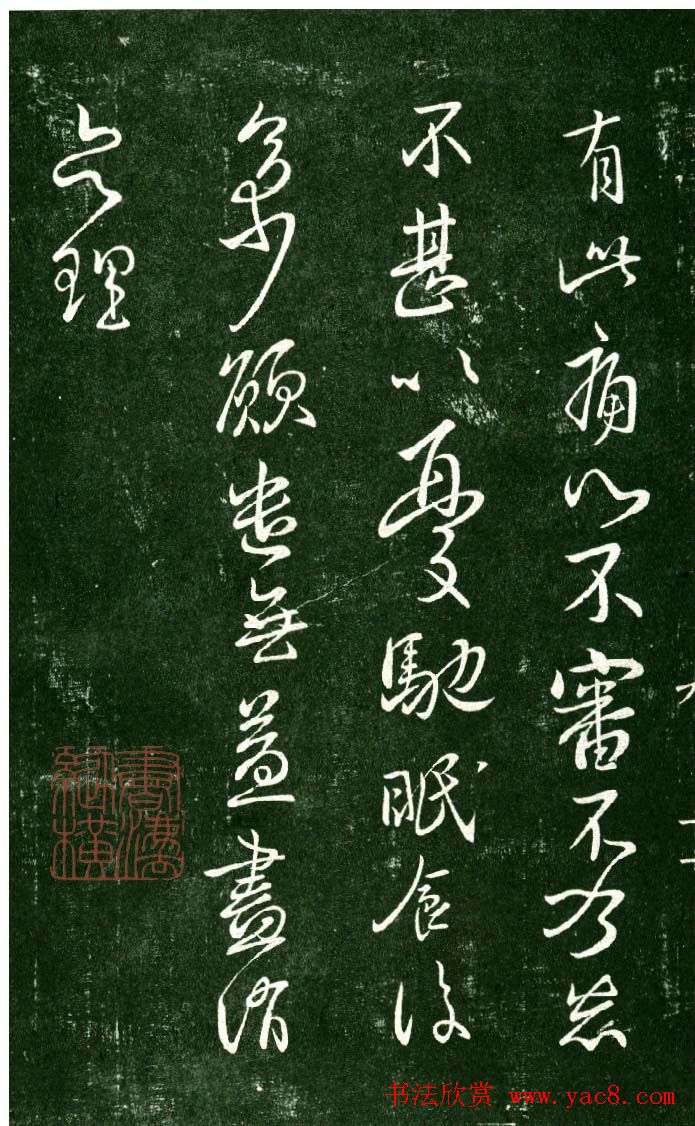 有此痛心不審不乃惡
不甚以憂馳眠食復
多少願遣無益盡消
息理
书法欣赏 www.yac8.com